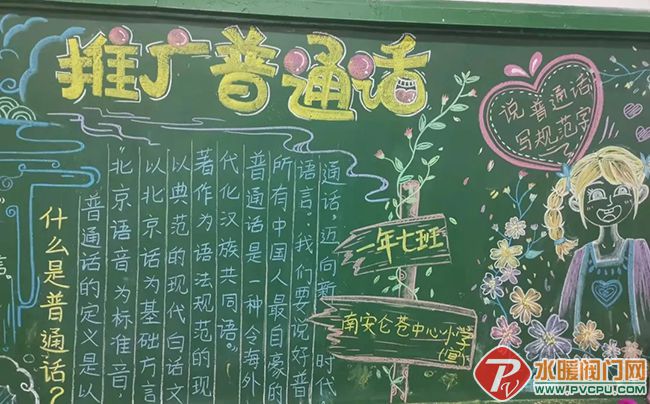 推广普通话
说普通话
写规范字
什么是普通话?
普通话的定义是以
“北京语音为标准音,
以北京话为基础方言
以典范的现代白话文
著作为语法规范的现
代化汉族共同语。
普通话是一种令海外
所有中国人最自豪的
语言。我们要说好普
通话,迈向新时代
一年七班
南安仑苍中心小学
(宣)
水暖阀门网
WWW.PVCPU.COM